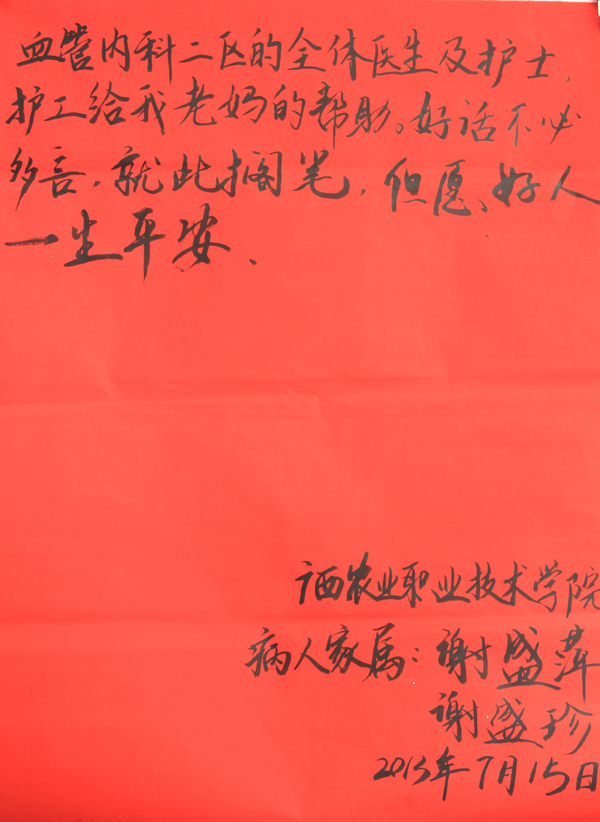 血管内科二区的全体医生及护士,
护工给我老妈的帮助。好话不必
多言,就此搁笔,但愿、好人
一生平安、
广西农业职业技术学院
病人家属:谢盛萍
谢盛珍
2013年7月15日